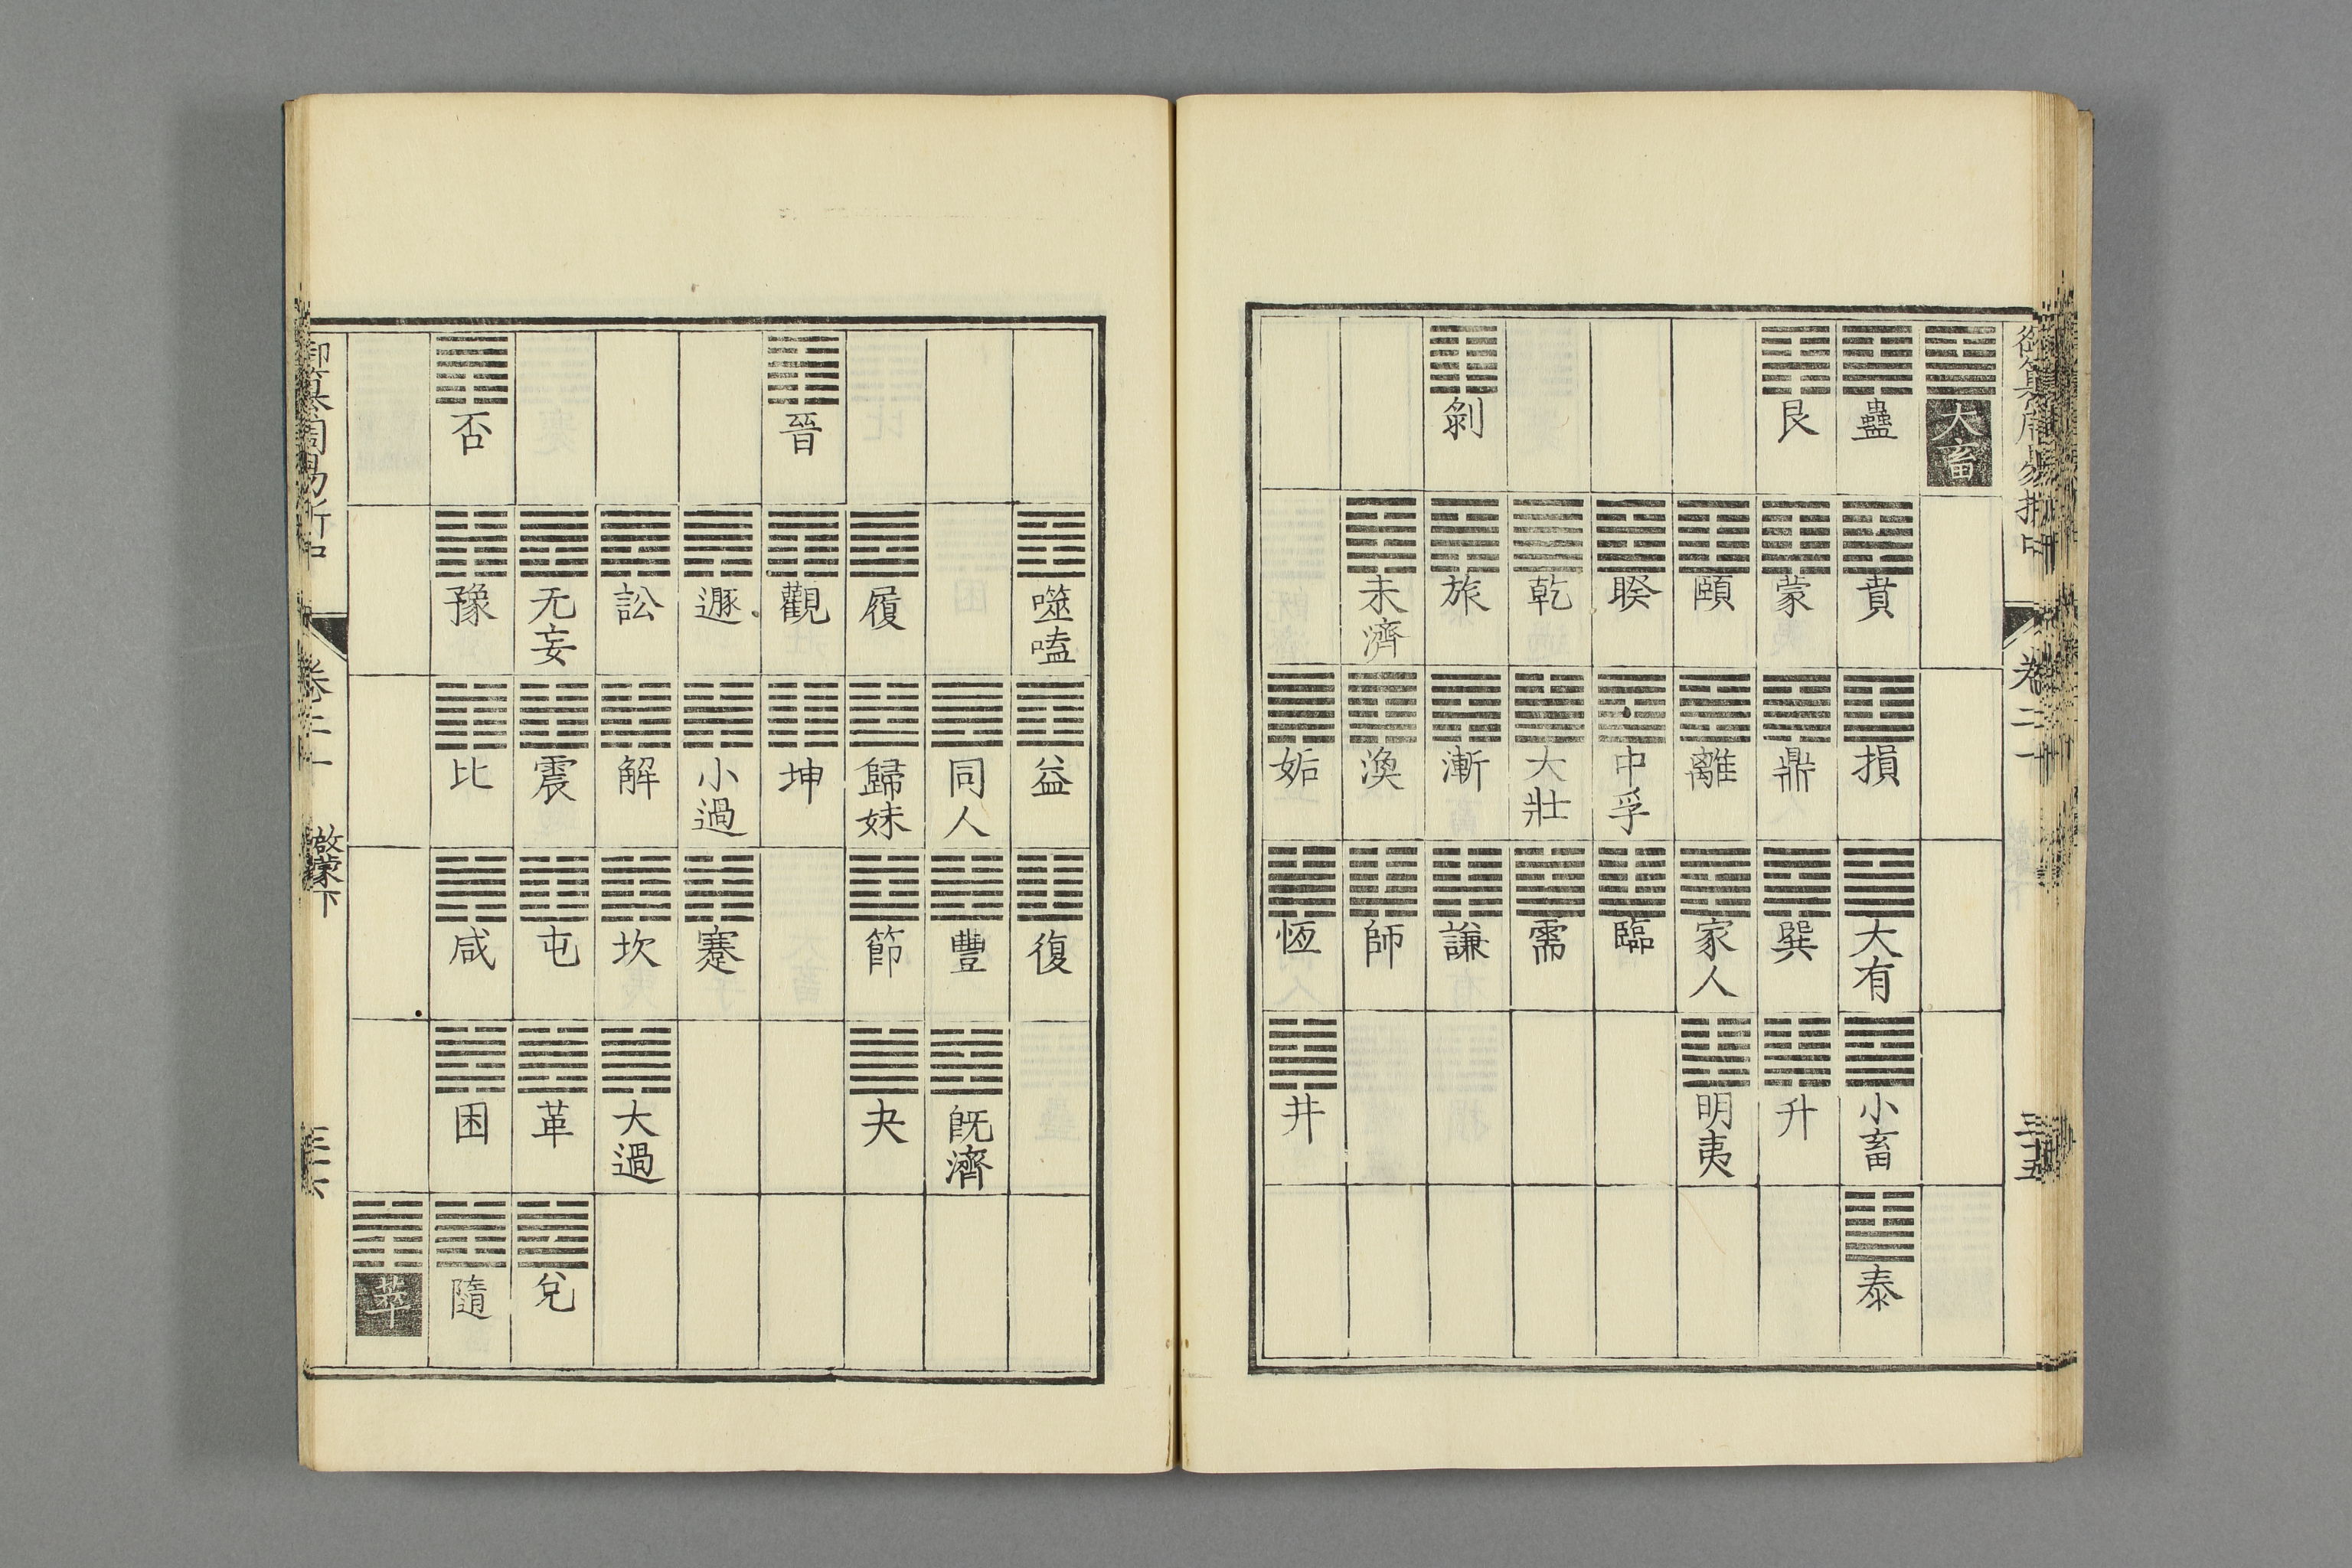 御纂周易折中
卷二十
三十五
大畜
蠱 賁 損 大有 小畜 泰
艮 蒙 鼎 巽 升
頤 離 家人 明夷
睽 中孚 臨
乾 大壯 需
剝 旅 漸 謙
未濟 渙 師
姤 恆 井
噬嗑 益 復
同人 豐 旣濟
履 歸妹 節 夬
晉 觀 坤
遯 小過 蹇
訟 解 坎 大過
无妄 震 屯 革 兌
否 豫 比 咸 困 隨
萃
御纂周易折中
卷二十
啟蒙下